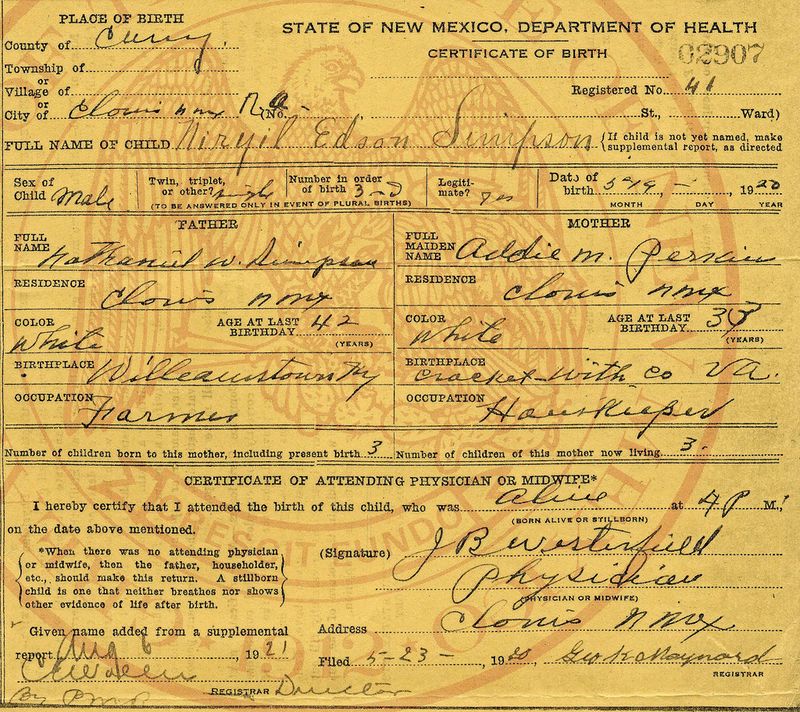 PLACE OF BIRTH
STATE OF NEW MEXICO, DEPARTMENT OF HEALTH
County of Curry
CERTIFICATE OF BIRTH
02907
Township of
or
Village of
Registered No. 41
or
City of Clovis n mx (No. St., Ward)
FULL NAME OF CHILD Virgil Edson Simpson (If child is not yet named, make supplemental report, as directed
Sex of Child Male
Twin, triplet, or other?
Number in order of birth 3
(TO BE ANSWERED ONLY IN EVENT OF PLURAL BIRTHS)
Legiti-mate? yes
Date of birth 5-19- 1920
MONTH DAY YEAR
FATHER
FULL NAME Nathaniel W. Simpson
RESIDENCE Clovis n mx
COLOR White
AGE AT LAST BIRTHDAY 42 (YEARS)
BIRTHPLACE Williamstown Ky
OCCUPATION Farmer
MOTHER
FULL MAIDEN NAME Addie M. Perkins
RESIDENCE Clovis n mx
COLOR White
AGE AT LAST BIRTHDAY (YEARS)
BIRTHPLACE Crocket With Co Va.
OCCUPATION Houskieper
Number of children born to this mother, including present birth 3
Number of children of this mother now living 3.
CERTIFICATE OF ATTENDING PHYSICIAN OR MIDWIFE*
I hereby certify that I attended the birth of this child, who was alive at 4 P M.,
(BORN ALIVE OR STILLBORN)
on the date above mentioned.
*When there was no attending physician
or midwife, then the father, householder,
etc., should make this return. A stillborn
child is one that neither breathes nor shows
other evidence of life after birth.
(Signature) J B Westerfield
Physician
(PHYSICIAN OR MIDWIFE)
Address Clovis n mx
Given name added from a supplemental
report Aug 6, 1921
Filed 5-23- 1920 Geo K Maynard
REGISTRAR
By
REGISTRAR Director